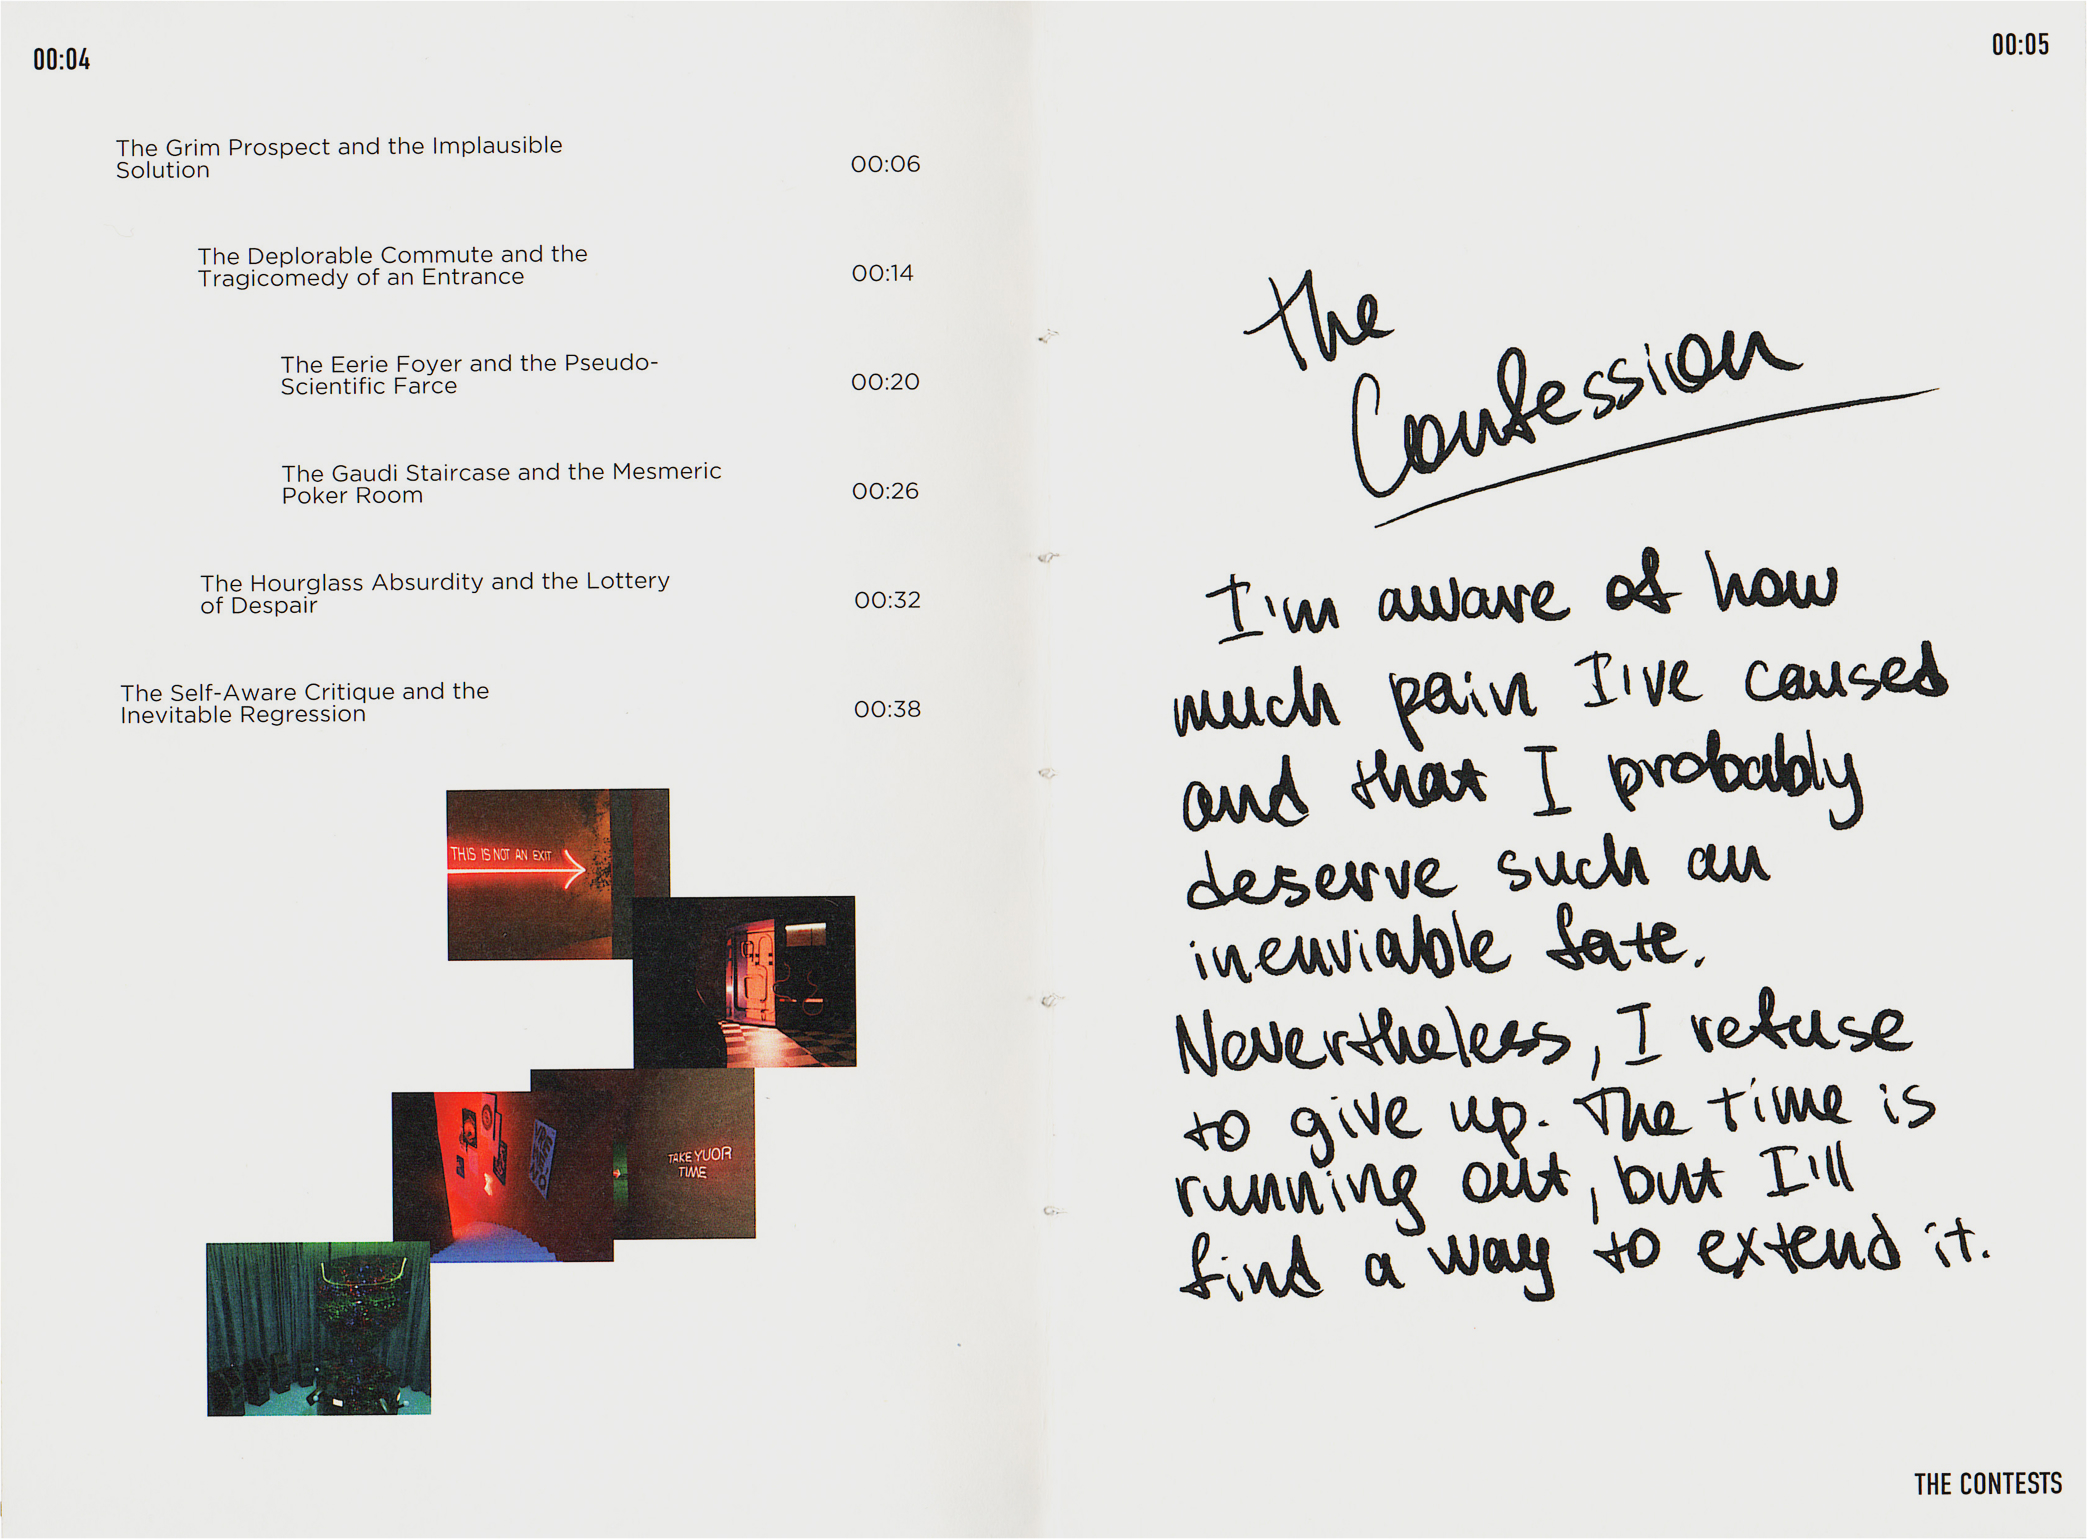 00:04
The Grim Prospect and the Implausible
Solution
00:06
The Deplorable Commute and the
Tragicomedy of an Entrance
00:14
The Eerie Foyer and the Pseudo-
Scientific Farce
00:20
The Gaudi Staircase and the Mesmeric
Poker Room
00:26
The Hourglass Absurdity and the Lottery
of Despair
00:32
The Self-Aware Critique and the
Inevitable Regression
00:38
THIS IS NOT AN EXIT
TAKE YUOR
TIME
00:05
The
Confession
I'm aware of how
much pain I've caused
and that I probably
deserve such an
inenviable fate.
Nevertheless, I refuse
to give up. The time is
running out, but I'll
find a way to extend it.
THE CONTESTS